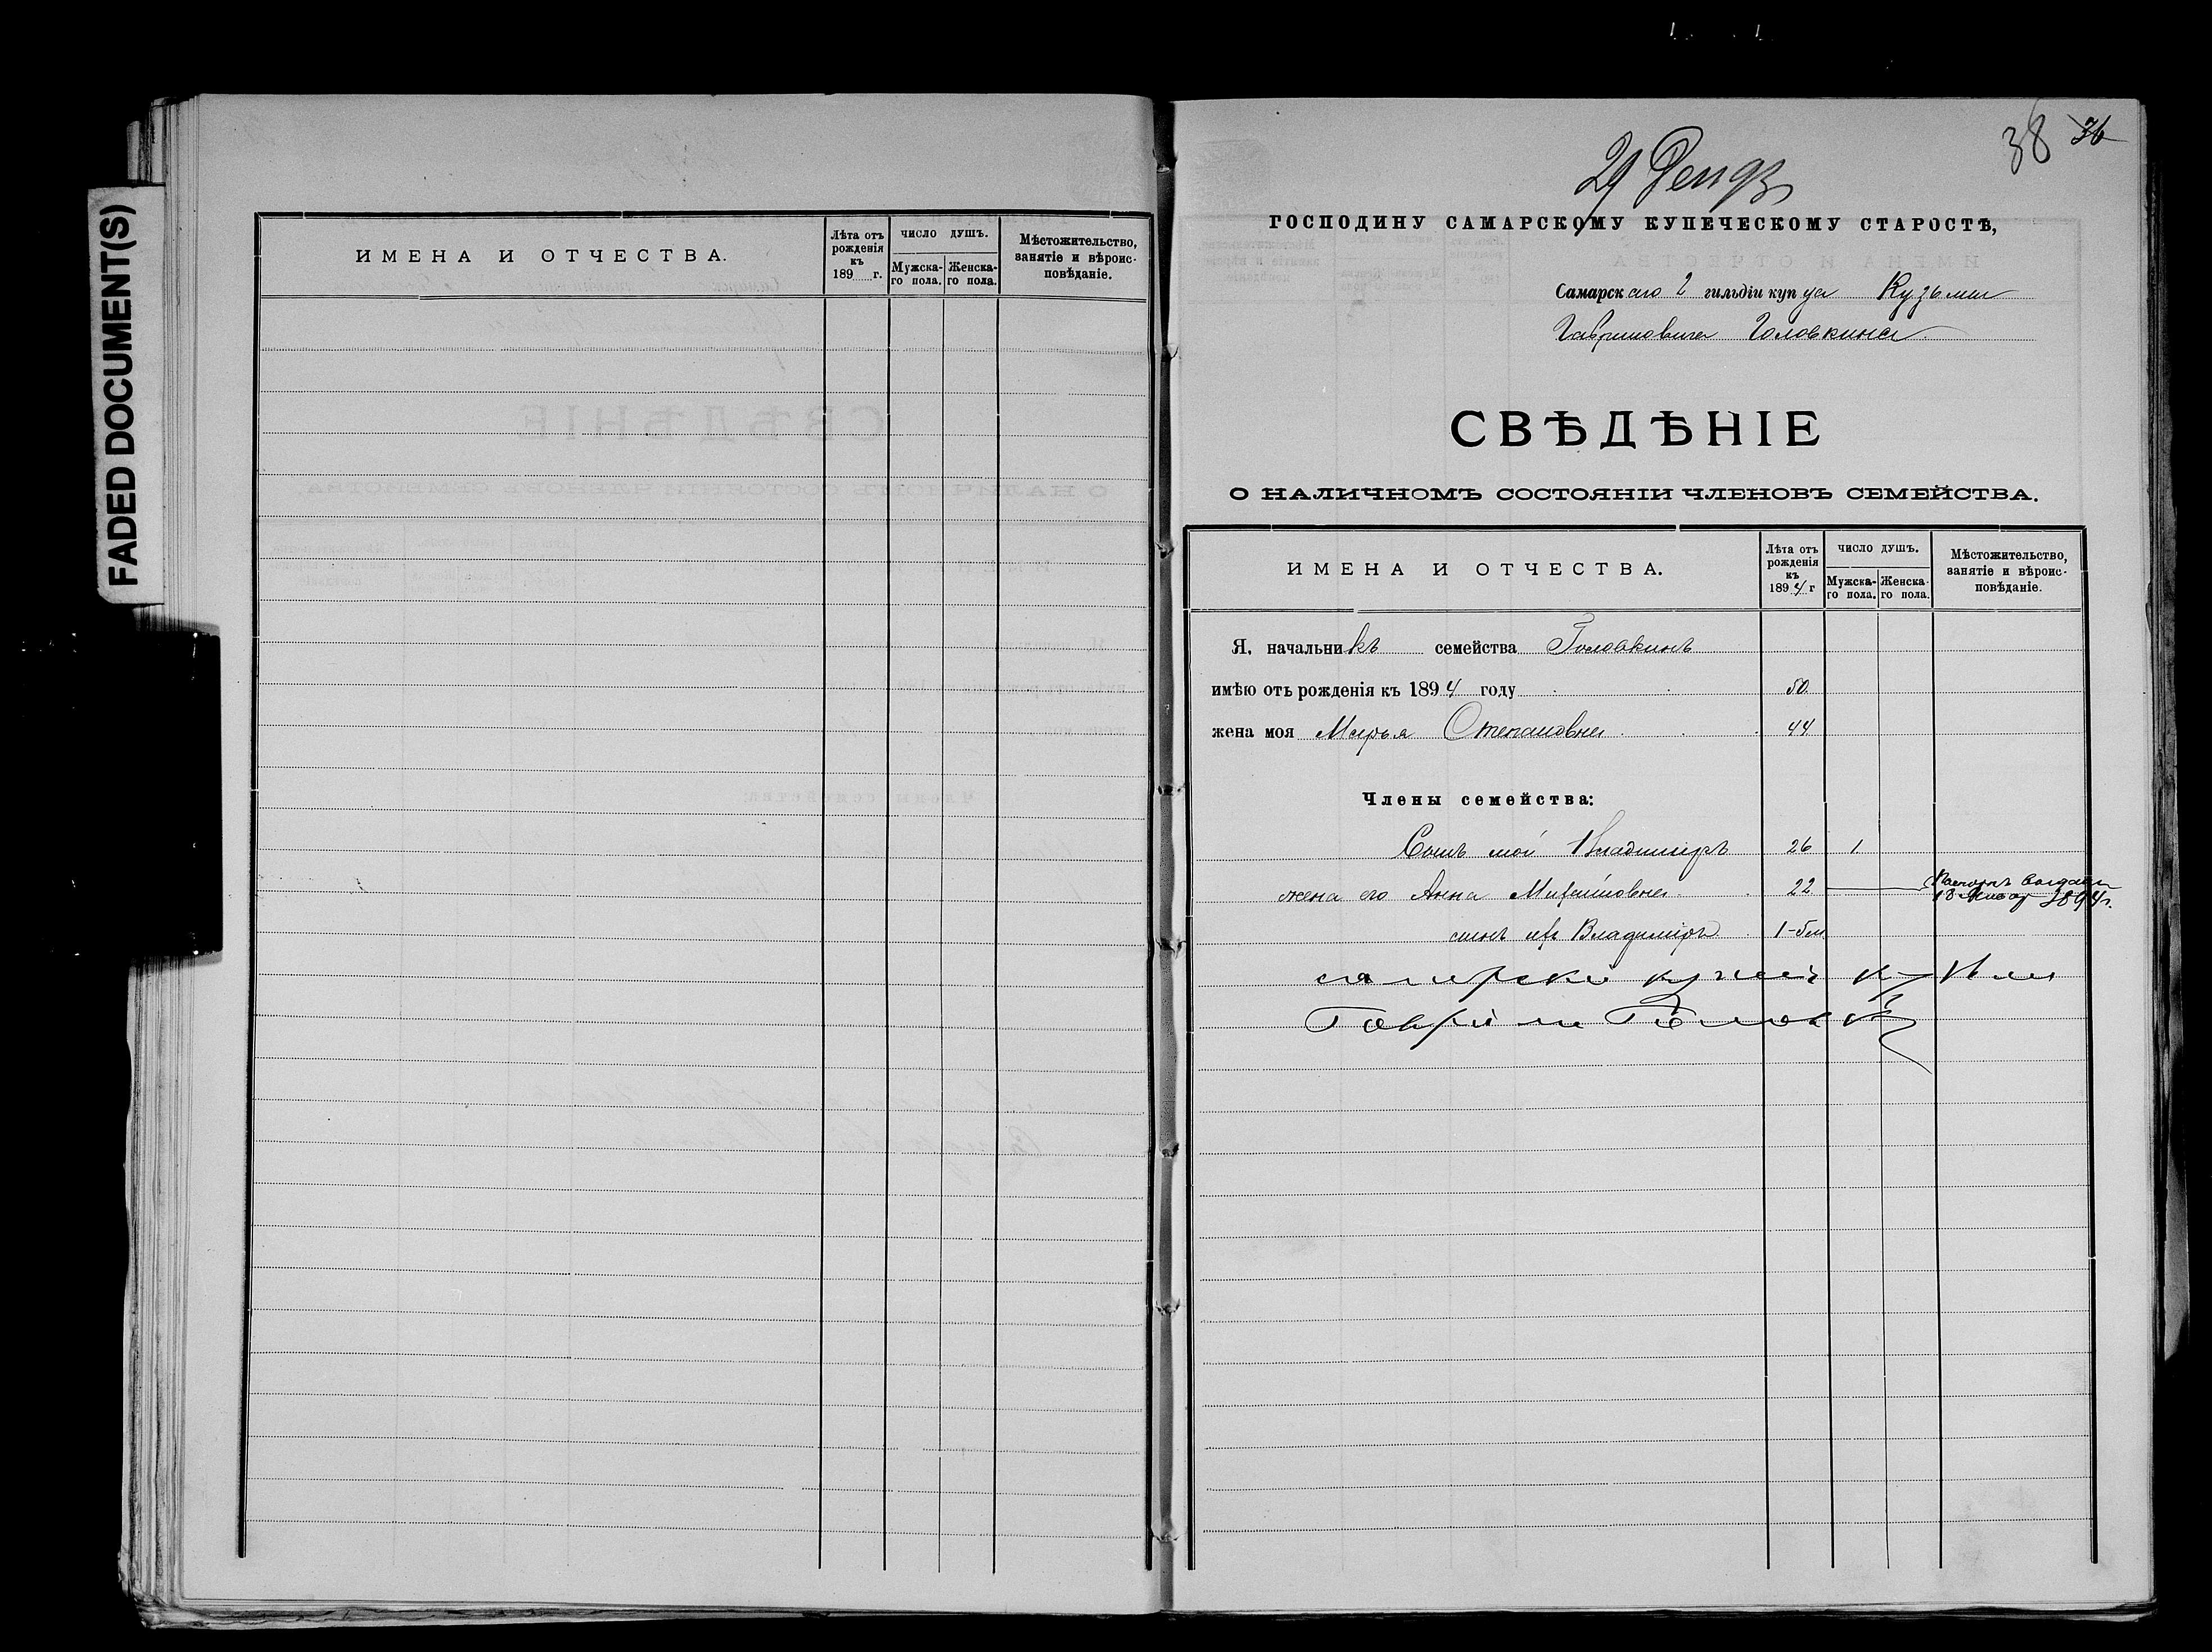 FADED DOCUMENT(S)
ИМЕНА И ОТЧЕСТВА.
Лѣта отъ рожденія къ 189 г.
ЧИСЛО ДУШЪ.
Мужска-го пола.
Женска-го пола.
Мѣстожительство, занятіе и вѣроис-повѣданіе.
38 36
29 Дек 93
ГОСПОДИНУ САМАРСКОМУ КУПЕЧЕСКОМУ СТАРОСТѢ,
Самарскаго 2 гильдіи купца Кузьмы
Гавриловича Головкина
СВѢДѢНІЕ
О НАЛИЧНОМЪ СОСТОЯНІИ ЧЛЕНОВЪ СЕМЕЙСТВА.
ИМЕНА И ОТЧЕСТВА.
Лѣта отъ рожденія къ 1894 г
ЧИСЛО ДУШЪ.
Мужска-го пола.
Женска-го пола.
Мѣстожительство, занятіе и вѣроис-повѣданіе.
Я, начальникъ семейства Головкинъ
имѣю отъ рожденія къ 1894 году 50
жена моя Марья Степановна 44
Члены семейства:
Сынъ мой Владиміръ 26 1
жена его Анна Михайловна 22
18 Январ 1894 г.
сынъ ихъ Владиміръ 1-5м
самарски купецъ